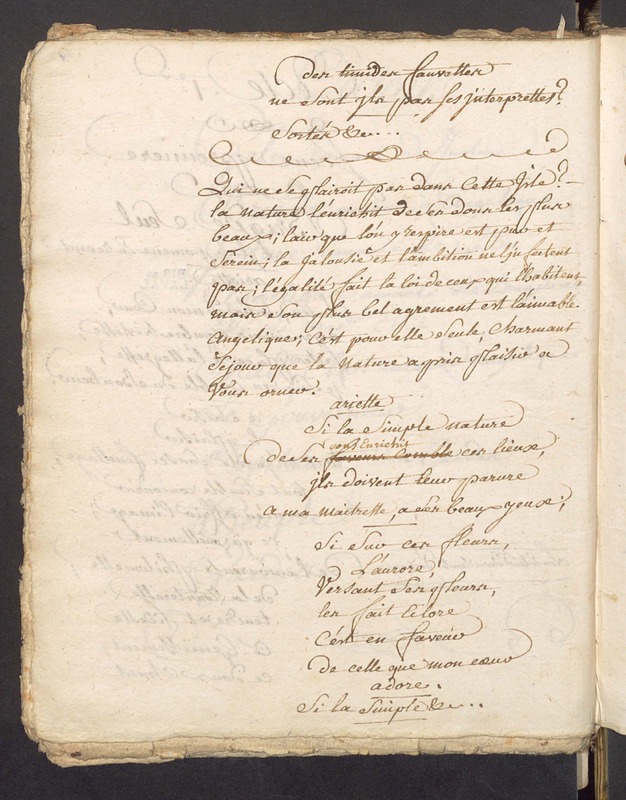 des timides fauvettes
ne sont jls pas ses jnterprettes?
Sortés &c....
Qui ne se plairoit pas dans Cette Jsle?
la nature l'enrichit de ses dons les plus
beaux; l'air que l'on y respire est pur et
Serein; la jalousie et l'ambition ne l'jnfectent
pas; l'egalité fait la loi de ceux qui l'habitent,
mais son plus bel agrement est l'aimable
angelique; C'est pour elle seule, Charmant
Sejour que la Nature a pris plaisir a
Vous orner.
ariette
Si la simple nature
vous Enrichit
de ses faveurs Comble ces lieux,
jls doivent leur parure
a ma maitresse, a ses beaux yeux;
Si sur ces fleurs,
L'aurore,
Versant ses pleurs,
les fait Eclore
C'est en faveur
De celle que mon coeur
adore.
Si la Simple &c...